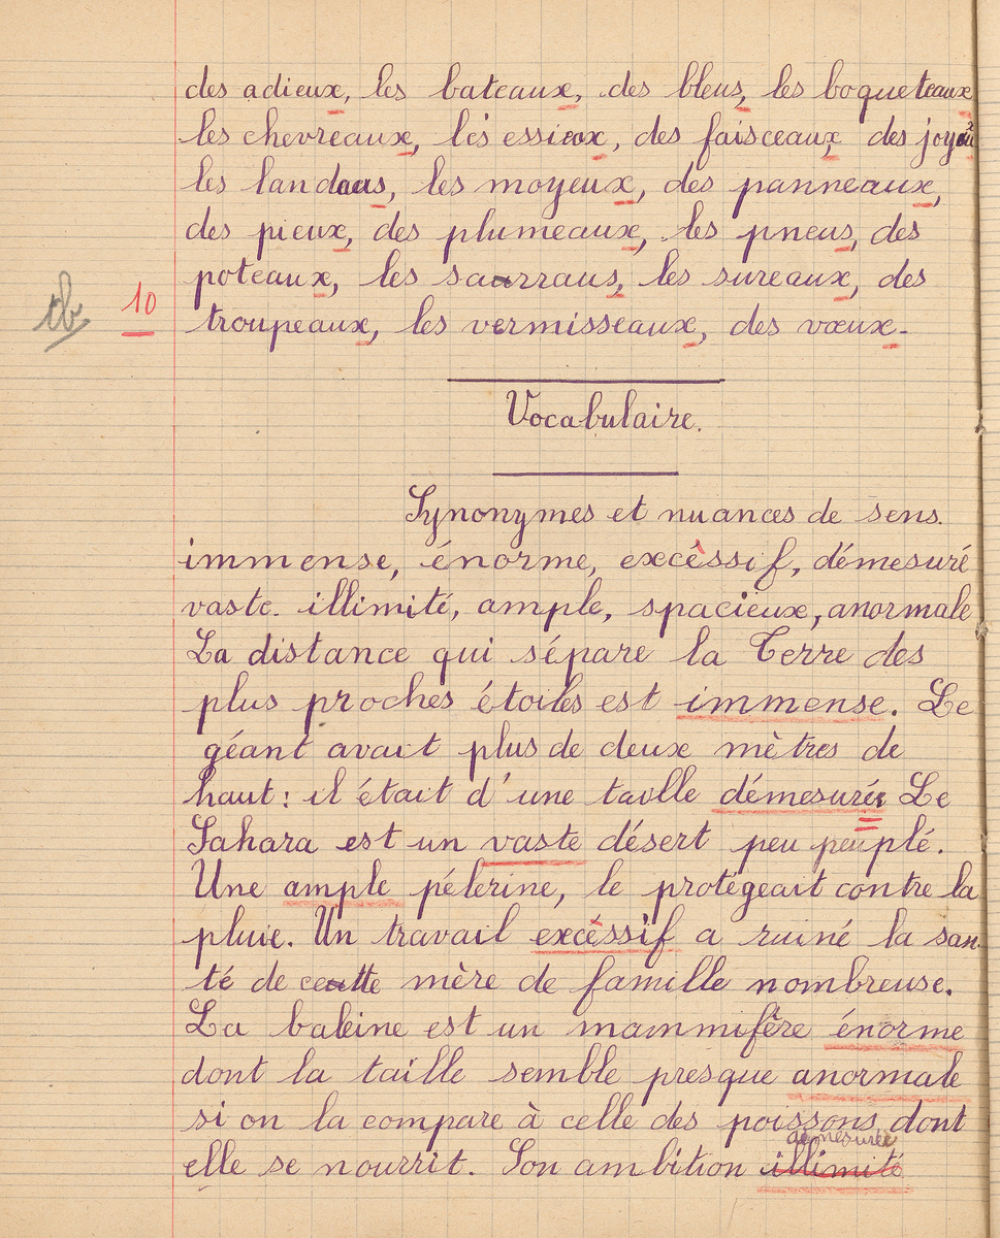 des adieux, les bateaux, des bleus, les boqueteaux
les chevreaux, les essieux, des faisceaux des joyaux
les landaus, les moyeux, des panneaux,
des pieux, des plumeaux, les pneus, des
poteaux, les sarraus, les sureaux, des
10
troupeaux, les vermisseaux, des vœux.
Vocabulaire.
Synonymes et nuances de sens.
immense, énorme, excèssif, démesuré
vaste. illimité, ample, spacieux, anormale
La distance qui sépare la Terre des
plus proches étoiles est immense. Le
géant avait plus de deux mètres de
haut: il était d'une taille démesurée Le
Sahara est un vaste désert peu peuplé.
Une ample pélerine, le protégeait contre la
pluie. Un travail excéssif a ruiné la san
té de cette mère de famille nombreuse.
La baleine est un mammifère énorme
dont la taille semble presque anormale
si on la compare à celle des poissons dont
démesurée
elle se nourrit. Son ambition illimité